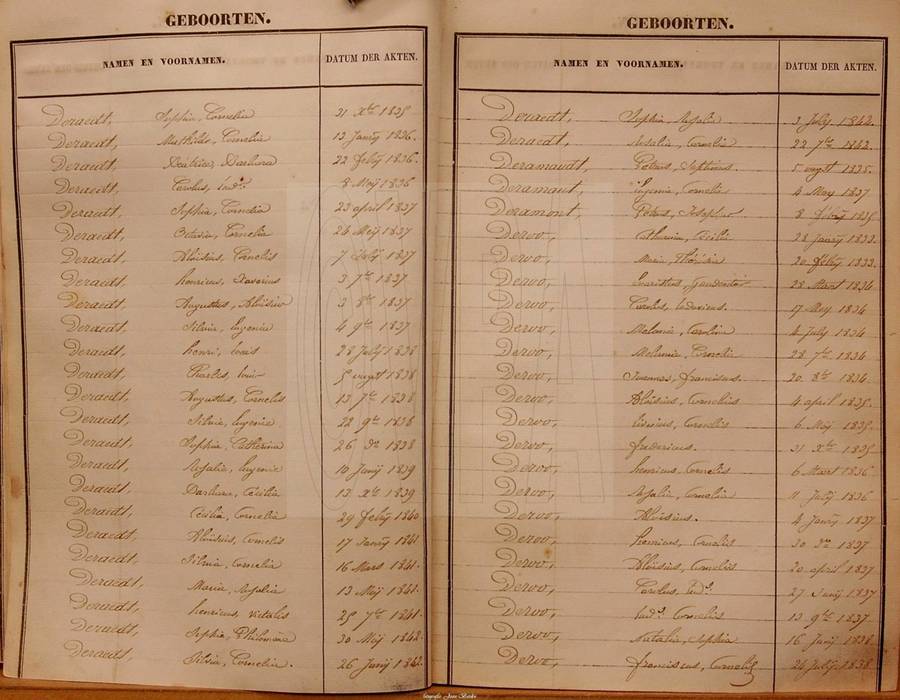 GEBOORTEN.
NAMEN EN VOORNAMEN. DATUM DER AKTEN.
Deraedt, Sophia, Cornelia 31 Xbre 1835
Deraedt, Mathilde, Cornelia 13 Janij 1836.
Deraedt, Beatrice, Barbara 22 feby 1836.
Deraedt, Carolus, Lud. 8 Meij 1836
Deraedt, Sophia, Cornelia 23 april 1837
Deraedt, Octavia, Cornelia 26 Meij 1837
Deraedt, Aloisius, Cornelis 7 July 1837
Deraedt, henricus, Xaverius 3 7bre 1837
Deraedt, Augustus, Aloisius 3 8bre 1837
Deraedt, Silvia, Eugenia 4 9bre 1837
Deraedt, henri, Louis 28 July 1838
Deraedt, Charles, Louis 5 augst 1838
Deraedt, Augustus, Cornelis 13 7bre 1838
Deraedt, Silvia, Eugenia 22 9bre 1838
Deraedt, Sophia, Catherina 26 do 1838
Deraedt, Rosalia, Eugenie 10 Junij 1839
Deraedt, Barbara, Cecilia 13 Xbre 1839
Deraedt, Cecilia, Cornelia 29 feby 1840
Deraedt, Aloisius, Cornelis 17 Janij 1841.
Deraedt, Silvia, Cornelia 16 Mars 1841.
Deraedt, Maria, Rosalia 13 Meij 1841.
Deraedt, henricus, vitalis 25 7bre 1841.
Deraedt, Sophia, Philomena 30 Meij 1842.
Deraedt, Silvia, Cornelia. 26 Junij 1842.
GEBOORTEN.
NAMEN EN VOORNAMEN. DATUM DER AKTEN.
Deraedt, Sophia, Rosalia 3 July 1842.
Deraedt, Natalia, Cornelia 22 7bre 1842.
Deramaudt, Petrus, Septimus 5 augst 1835.
Deramaut, Eugenia, Cornelia 4 Mey 1837
Deramont, Petrus, Josephus 8 feby 1835
Deroo, Catharina, Cecilia 28 Janij 1833.
Deroo, Maria, Thérésia 20 feby 1833.
Deroo, Evaristus, Gaudentius 28 Maart 1834
Deroo, Carolus, Ludovicus 17 Mey 1834
Deroo, Melania, Carolina 4 July 1834
Deroo, Melania, Cornelia 28 7bre 1834
Deroo, Joannes, franciscus. 20 8bre 1834.
Deroo, Aloisius, Cornelius 4 april 1835.
Deroo, Cornelis 6 Meij 1835.
Deroo, fredericus. 31 Xbre 1835
Deroo, henricus, Cornelis 6 Maart 1836
Deroo, Rosalia, Cornelia 11 July 1836
Deroo, Aloisius. 4 Janij 1837
Deroo, henricus, Cornelis 30 do 1837
Deroo, Aloisius, Cornelius 20 april 1837
Deroo, Carolus, Lud. 27 Junij 1837
Deroo, Lud. Cornelis 13 9bre 1837
Deroo, Natalia, Sophia 16 Junij 1838
Deroo, franciscus, Cornelis 24 July 1838